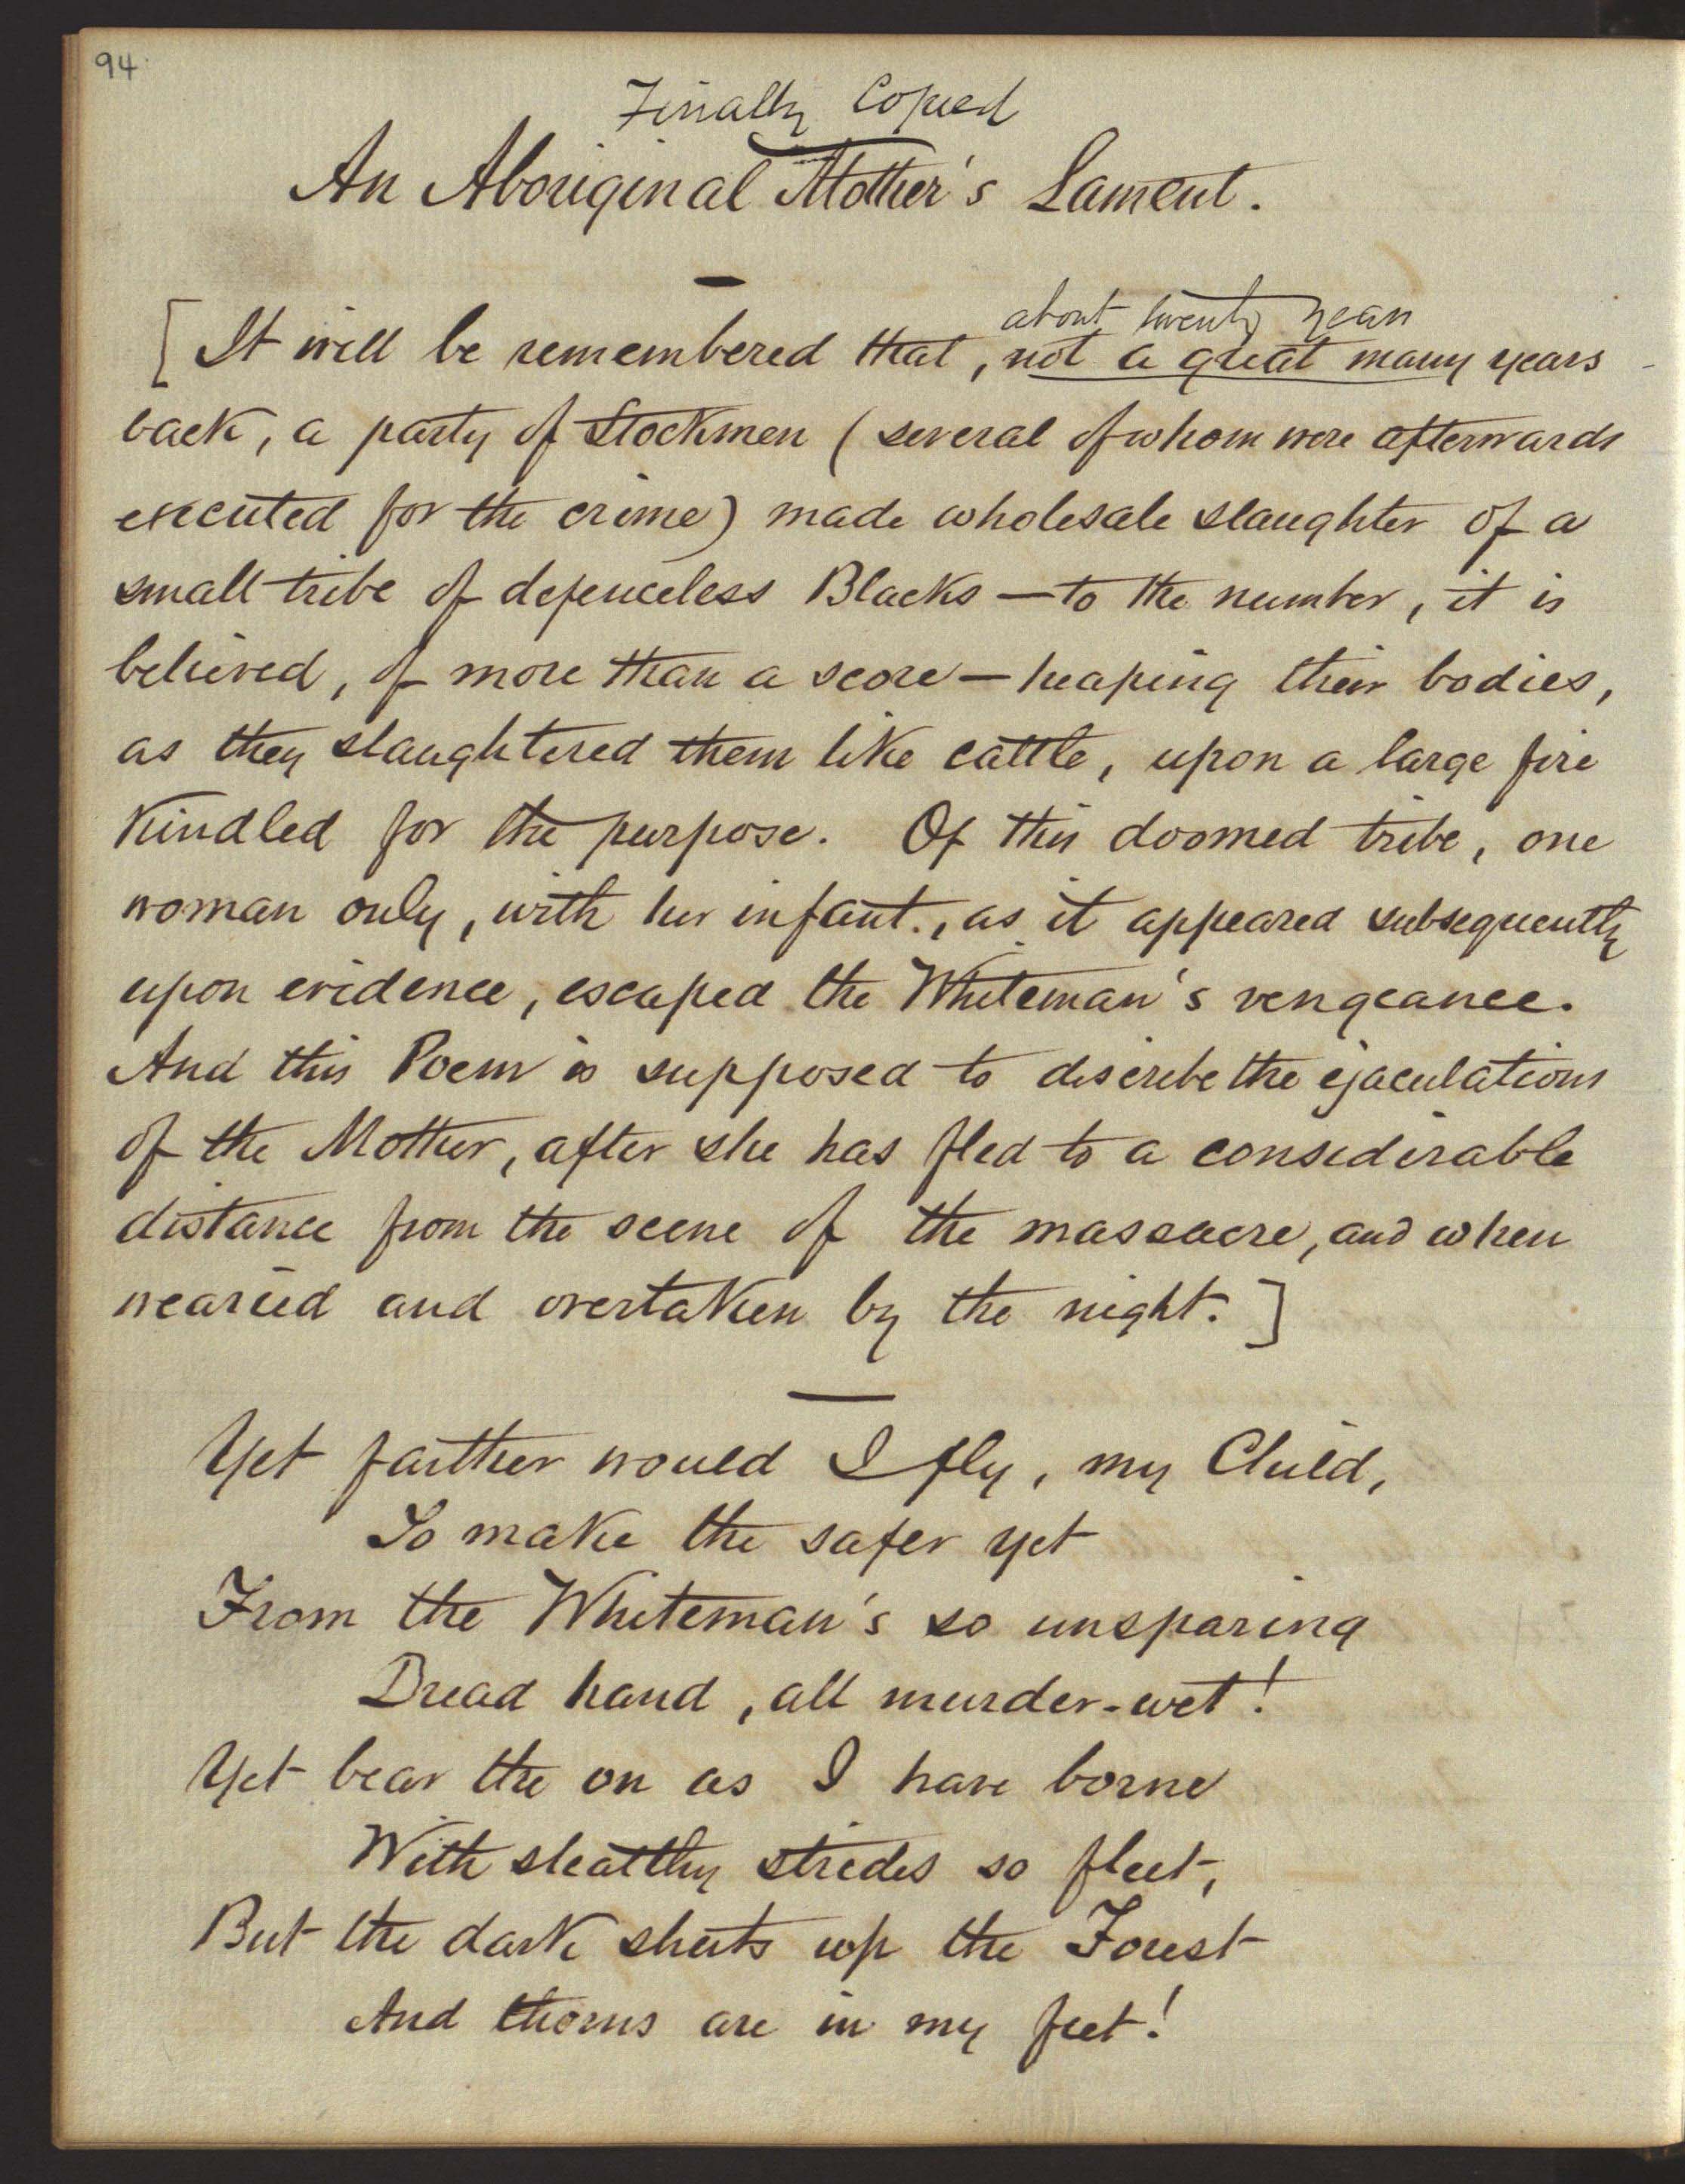 94
Finally Copied
An Aboriginal Mother's Lament.
about twenty years
[It will be remembered that, not a great many years
back, a party of Stockmen (several of whom were afterwards
executed for the crime) made wholesale slaughter of a
small tribe of defenceless Blacks — to the number, it is
believed, of more than a score — heaping their bodies,
as they slaughtered them like cattle, upon a large fire
kindled for the purpose. Of this doomed tribe, one
woman only, with her infant., as it appeared subsequently
upon evidence, escaped the Whiteman's vengeance.
And this Poem is supposed to discribe the ejaculations
of the Mother, after she has fled to a considerable
distance from the scene of the massacre, and when
wearied and overtaken by the night.]
Yet farther would I fly, my Child,
To make the safer yet
From the Whiteman's so unsparing
Dread hand, all murder-wet!
Yet bear the on as I have borne
With stealthy strides so fleet,
But the dark shuts up the Forest
And thorns are in my feet!